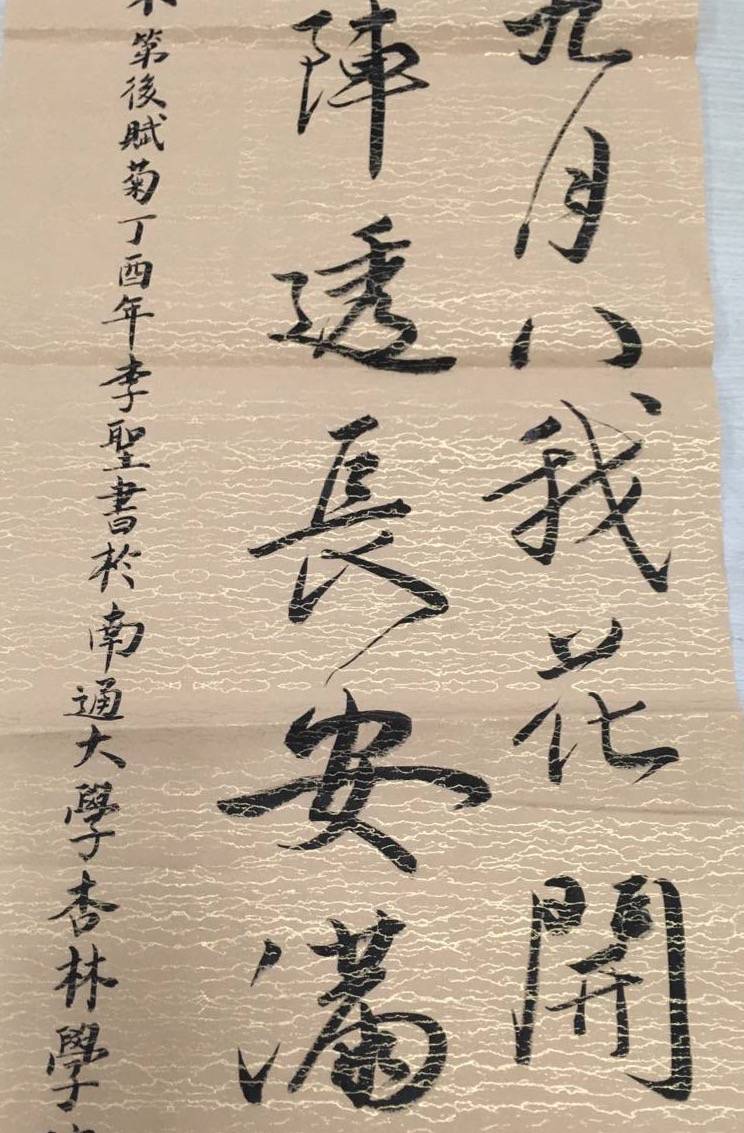 九月八我花開
陣透長安滿
不第後賦菊丁酉年李聖書於南通大學杏林學